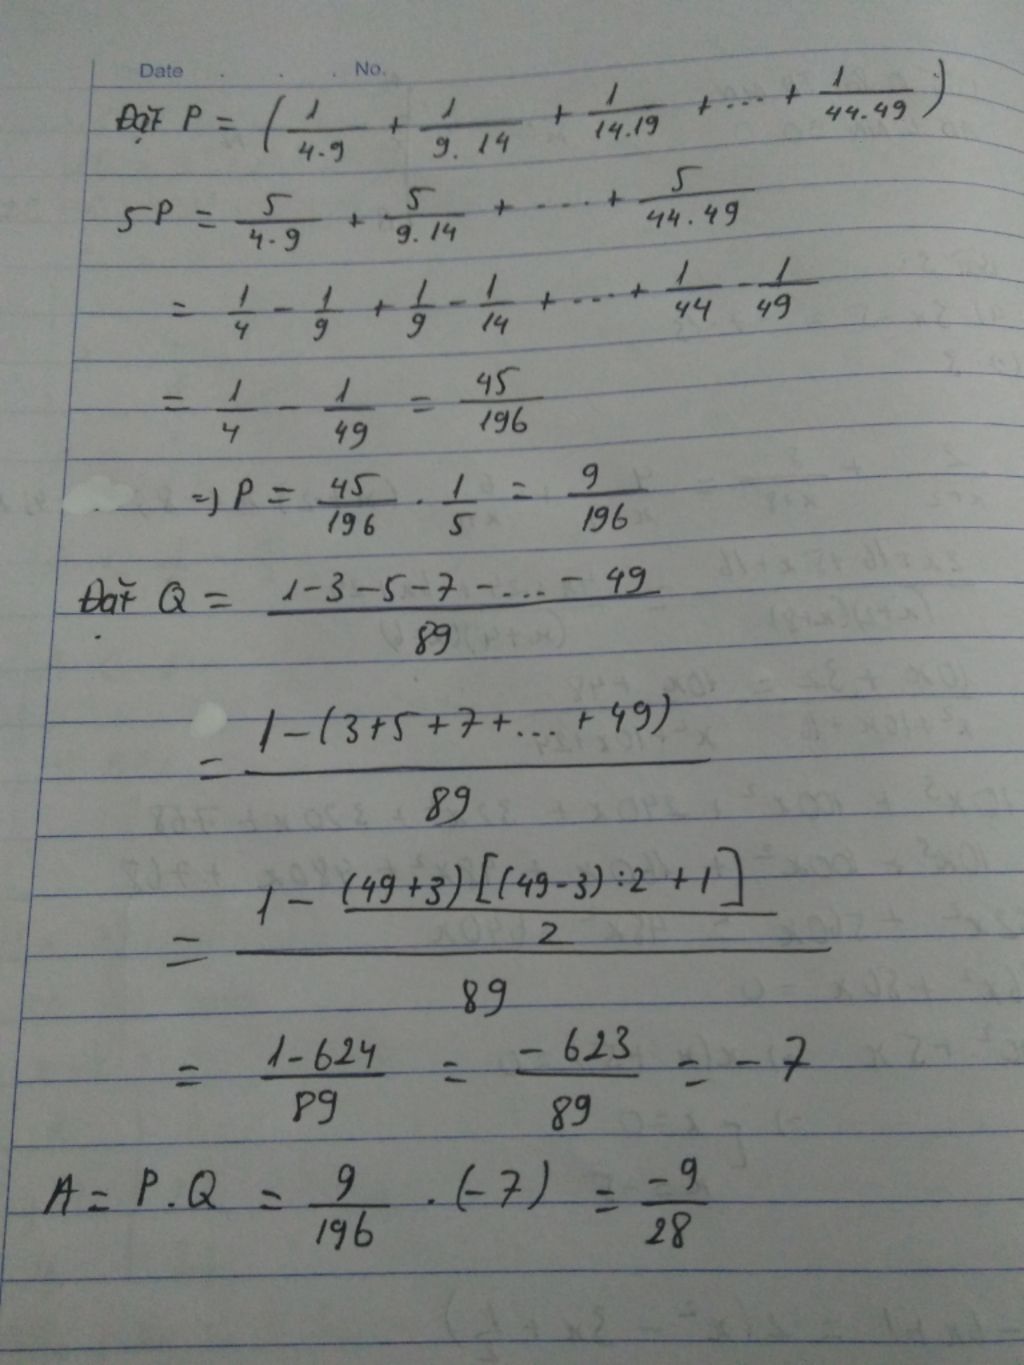 Date . . . No.
Đặt P = ( 1/4.9 + 1/9.14 + 1/14.19 + ... + 1/44.49 )
5P = 5/4.9 + 5/9.14 + .... + 5/44.49
= 1/4 - 1/9 + 1/9 - 1/14 + .... + 1/44 - 1/49
= 1/4 - 1/49 = 45/196
=> P = 45/196 . 1/5 = 9/196
Đặt Q = 1-3-5-7-... - 49 / 89
= 1-(3+5+7+... + 49) / 89
= 1 - (49+3)[(49-3):2 +1] / 2 / 89
= 1-624/89 = -623/89 = -7
A = P.Q = 9/196 . (-7) = -9/28